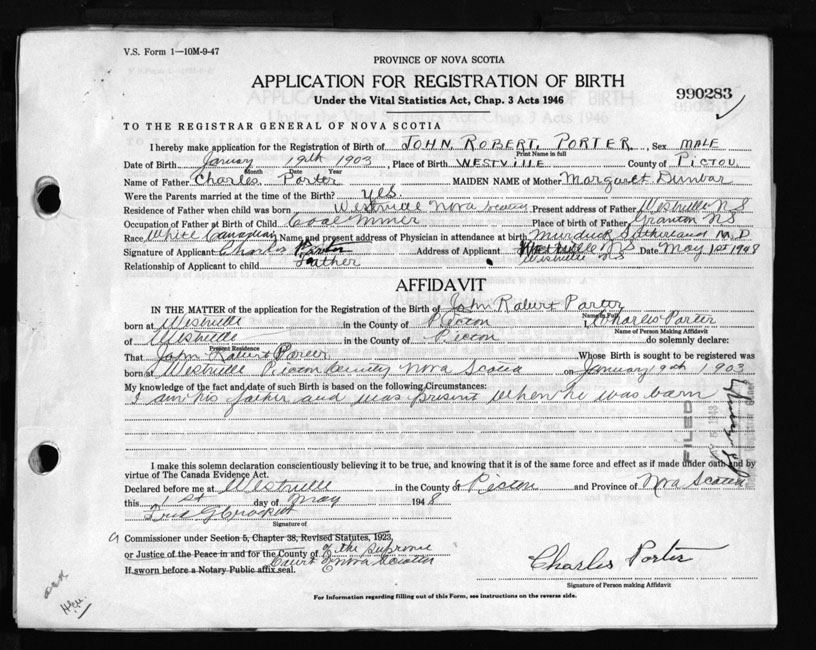 V.S. Form 1—10M-9-47
PROVINCE OF NOVA SCOTIA
APPLICATION FOR REGISTRATION OF BIRTH
990283
Under the Vital Statistics Act, Chap. 3 Acts 1946
TO THE REGISTRAR GENERAL OF NOVA SCOTIA
I hereby make application for the Registration of Birth of JOHN ROBERT PORTER, Sex MALE
Print Name in full
Date of Birth January 19th 1903, Place of Birth WESTVILLE County of PICTOU
Month Date Year
Name of Father Charles Porter MAIDEN NAME of Mother Margaret Dunbar
Were the Parents married at time of the Birth? yes
Residence of Father when child was born Westville Nova Scotia Present address of Father Westville N S
Occupation of Father at Birth of Child Coal Miner Place of Birth of Father Granton N S
Race White Canadian Name and present address of Physician in attendance at birth Murdock Sutherland M.D
Signature of Applicant Charles Porter Address of Applicant Westville N S Date May 1st 1948
Relationship of Applicant to child Father Westville N S
AFFIDAVIT
IN THE MATTER of the application for the Registration of the Birth of John Robert Porter
Name in Full
born at Westville in the County of Pictou I, Charles Porter
Name of Person Making Affidavit
of Westville in the County of Pictou do solemnly declare:
Present Residence
That John Robert Porter Whose Birth is sought to be registered was
born at Westville Pictou County Nova Scotia on January 19th 1903
My knowledge of the fact and date of such Birth is based on the following Circumstances:
I am his father and was present when he was born
FILED
I make this solemn declaration conscientiously believing it to be true, and knowing that it is of the same force and effect as if made under oath and by
virtue of The Canada Evidence Act.
Declared before me at Westville in the County of Pictou and Province of Nova Scotia
this 1st day of May 1948
Signature of
a Commissioner under Section 5, Chapter 38, Revised Statutes, 1923,
or Justice of the Peace in and for the County of of the Supreme
Court of Nova Scotia
If sworn before a Notary Public affix seal.
Charles Porter
Signature of Person making Affidavit
For Information regarding filling out of this Form, see instructions on the reverse side.